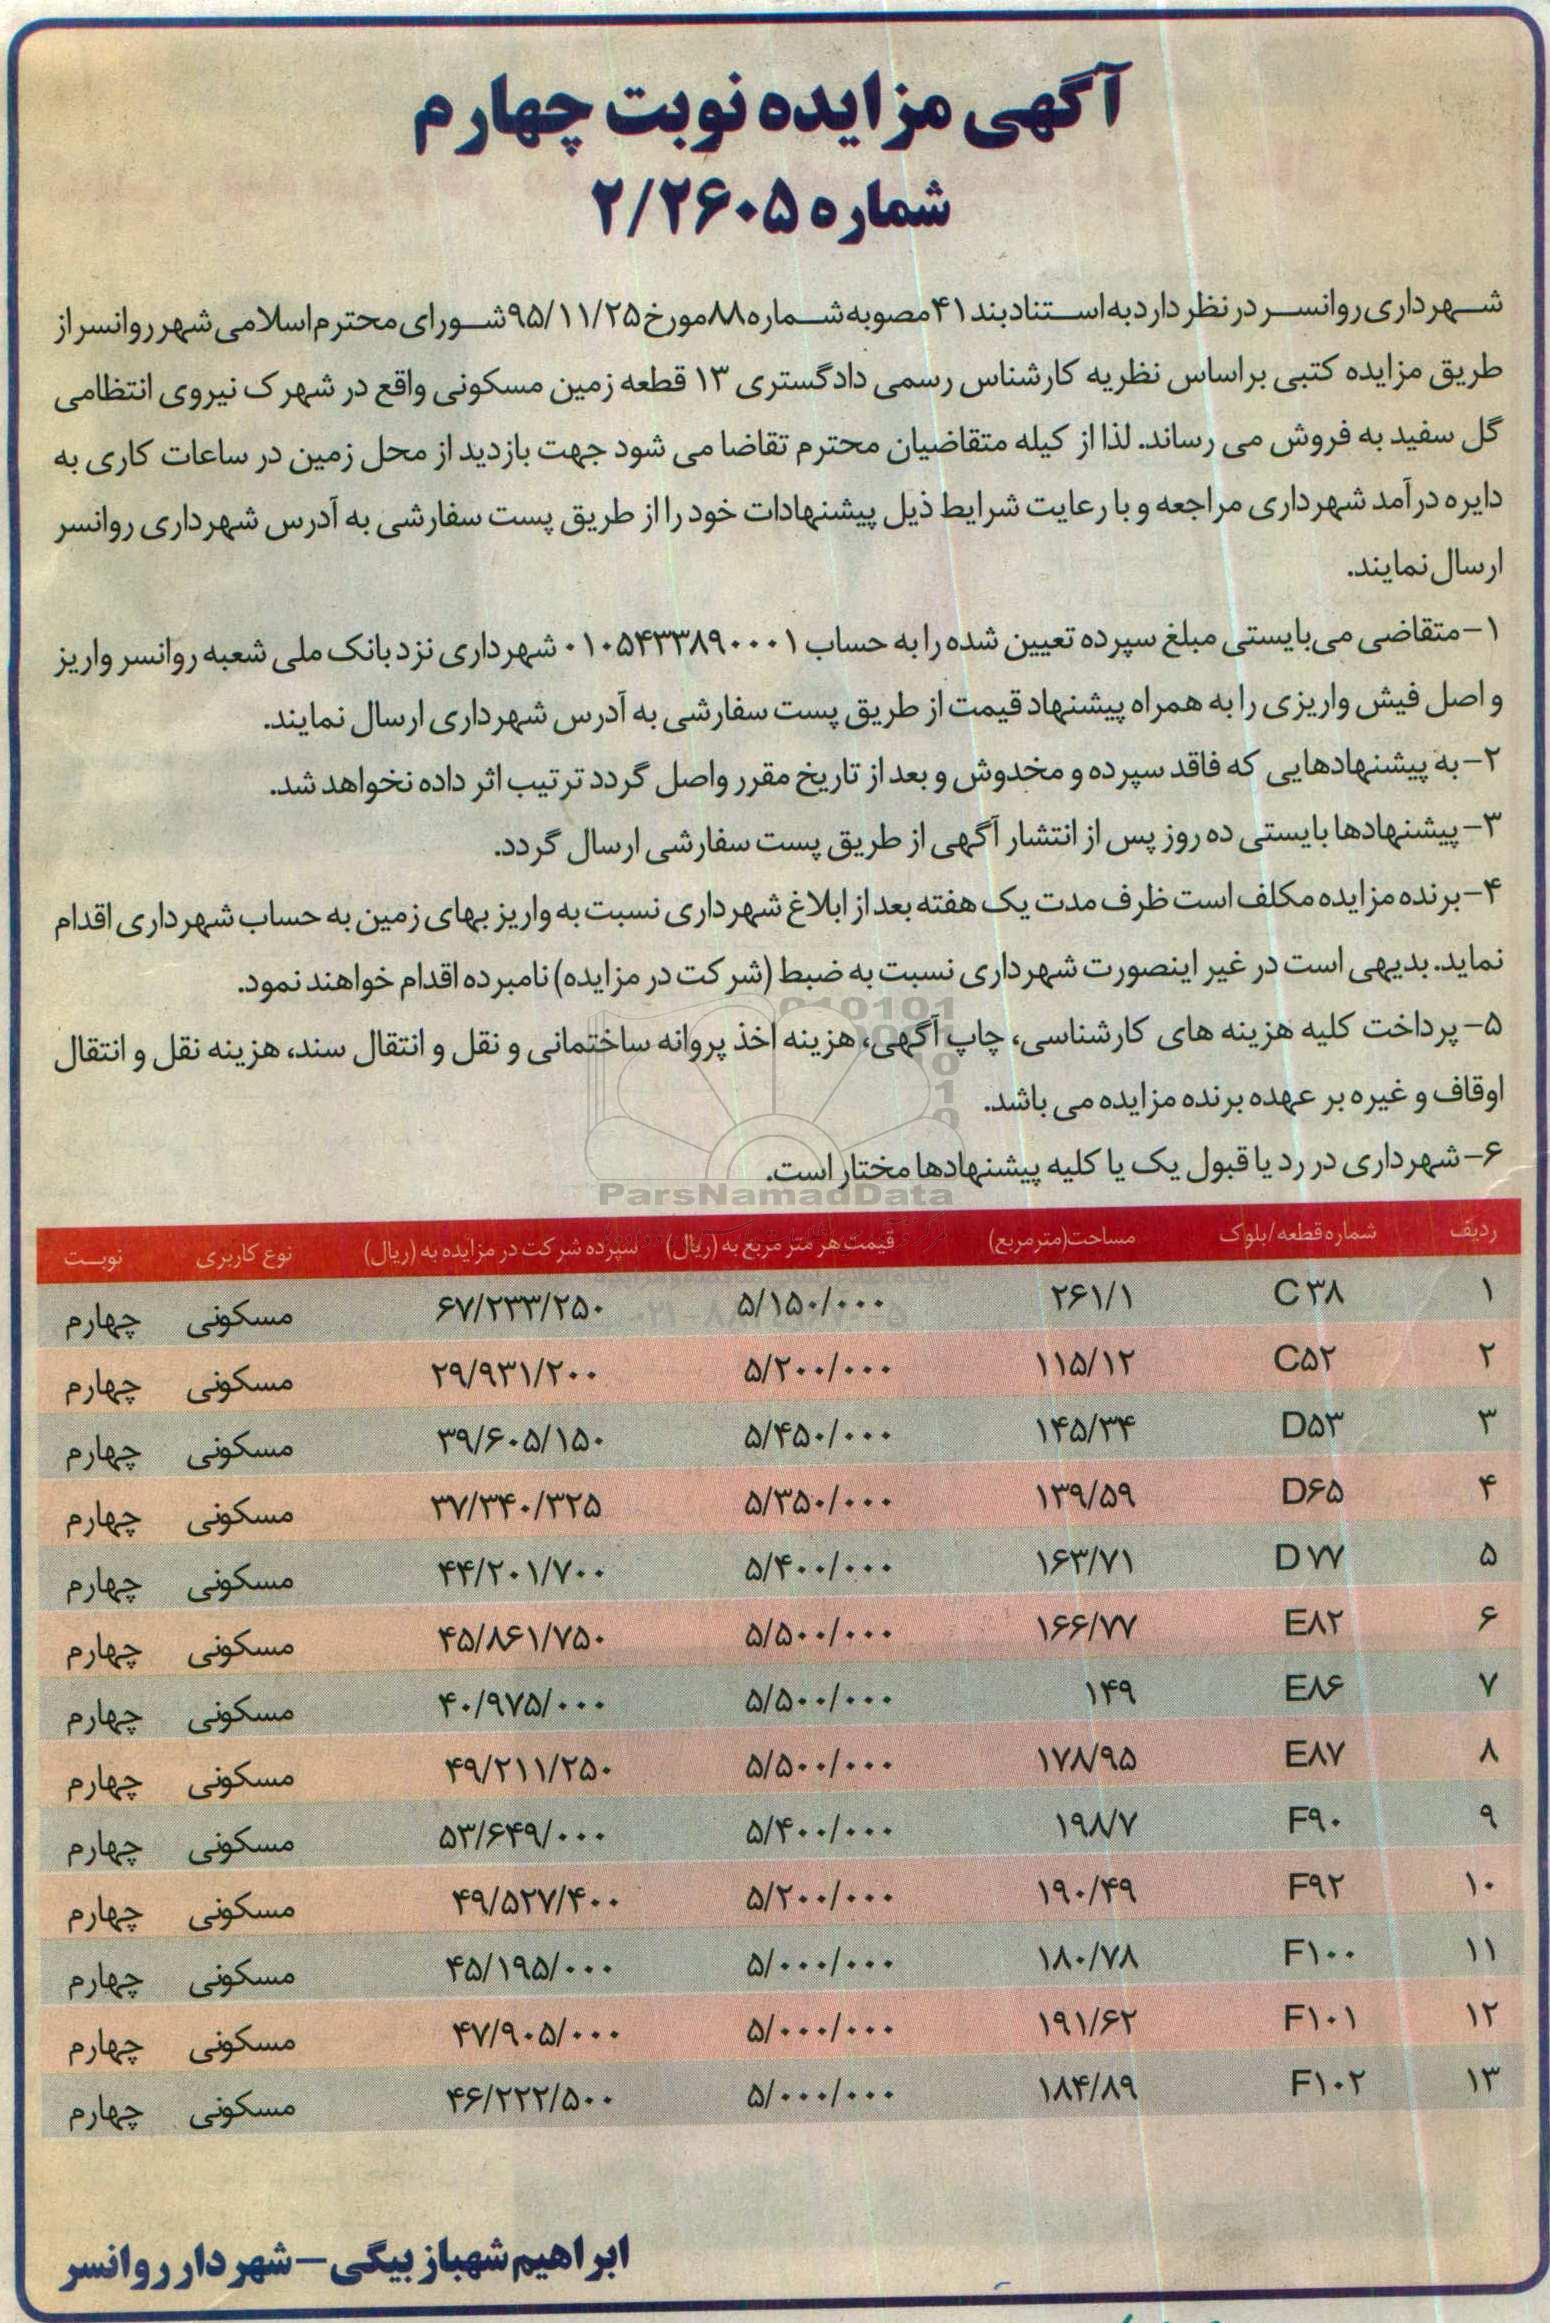 آگهی مزایده نوبت چهارم
شماره ۲/۲۶۰۵
شهرداری روانسر در نظر دارد به استناد بند ۴۱ مصوبه شماره ۸۸ مورخ ۹۵/۱۱/۲۵ شورای محترم اسلامی شهر روانسر از
طریق مزایده کتبی براساس نظریه کارشناس رسمی دادگستری ۱۳ قطعه زمین مسکونی واقع در شهرک نیروی انتظامی
گل سفید به فروش می رساند. لذا از کیله متقاضیان محترم تقاضا می شود جهت بازدید از محل زمین در ساعات کاری به
دایره درآمد شهرداری مراجعه و با رعایت شرایط ذیل پیشنهادات خود را از طریق پست سفارشی به آدرس شهرداری روانسر
ارسال نمایند.
۱- متقاضی می‌بایستی مبلغ سپرده تعیین شده را به حساب ۰۱۰۵۴۳۳۸۹۰۰۰۱ شهرداری نزد بانک ملی شعبه روانسر واریز
و اصل فیش واریزی را به همراه پیشنهاد قیمت از طریق پست سفارشی به آدرس شهرداری ارسال نمایند.
۲- به پیشنهادهایی که فاقد سپرده و مخدوش و بعد از تاریخ مقرر واصل گردد ترتیب اثر داده نخواهد شد.
۳- پیشنهادها بایستی ده روز پس از انتشار آگهی از طریق پست سفارشی ارسال گردد.
۴- برنده مزایده مکلف است ظرف مدت یک هفته بعد از ابلاغ شهرداری نسبت به واریز بهای زمین به حساب شهرداری اقدام
نماید. بدیهی است در غیر اینصورت شهرداری نسبت به ضبط (شرکت در مزایده) نامبرده اقدام خواهند نمود.
۵- پرداخت کلیه هزینه های کارشناسی، چاپ آگهی، هزینه اخذ پروانه ساختمانی و نقل و انتقال سند، هزینه نقل و انتقال
اوقاف و غیره بر عهده برنده مزایده می باشد.
۶- شهرداری در رد یا قبول یک یا کلیه پیشنهادها مختار است.
ParsNamadData
ردیف شماره قطعه/بلوک مساحت(مترمربع) قیمت هر متر مربع به (ریال) سپرده شرکت در مزایده به (ریال) نوع کاربری نوبت
۱ C۳۸ ۲۶۱/۱ ۵/۱۵۰/۰۰۰ ۶۷/۲۳۳/۲۵۰ مسکونی چهارم
۲ C۵۲ ۱۱۵/۱۲ ۵/۲۰۰/۰۰۰ ۲۹/۹۳۱/۲۰۰ مسکونی چهارم
۳ D۵۳ ۱۴۵/۳۴ ۵/۴۵۰/۰۰۰ ۳۹/۶۰۵/۱۵۰ مسکونی چهارم
۴ D۶۵ ۱۳۹/۵۹ ۵/۳۵۰/۰۰۰ ۳۷/۳۴۰/۳۲۵ مسکونی چهارم
۵ D۷۷ ۱۶۳/۷۱ ۵/۴۰۰/۰۰۰ ۴۴/۲۰۱/۷۰۰ مسکونی چهارم
۶ E۸۲ ۱۶۶/۷۷ ۵/۵۰۰/۰۰۰ ۴۵/۸۶۱/۷۵۰ مسکونی چهارم
۷ E۸۶ ۱۴۹ ۵/۵۰۰/۰۰۰ ۴۰/۹۷۵/۰۰۰ مسکونی چهارم
۸ E۸۷ ۱۷۸/۹۵ ۵/۵۰۰/۰۰۰ ۴۹/۲۱۱/۲۵۰ مسکونی چهارم
۹ F۹۰ ۱۹۸/۷ ۵/۴۰۰/۰۰۰ ۵۳/۶۴۹/۰۰۰ مسکونی چهارم
۱۰ F۹۲ ۱۹۰/۴۹ ۵/۲۰۰/۰۰۰ ۴۹/۵۲۷/۴۰۰ مسکونی چهارم
۱۱ F۱۰۰ ۱۸۰/۷۸ ۵/۰۰۰/۰۰۰ ۴۵/۱۹۵/۰۰۰ مسکونی چهارم
۱۲ F۱۰۱ ۱۹۱/۶۲ ۵/۰۰۰/۰۰۰ ۴۷/۹۰۵/۰۰۰ مسکونی چهارم
۱۳ F۱۰۲ ۱۸۴/۸۹ ۵/۰۰۰/۰۰۰ ۴۶/۲۲۲/۵۰۰ مسکونی چهارم
ابراهیم شهباز بیگی – شهردار روانسر